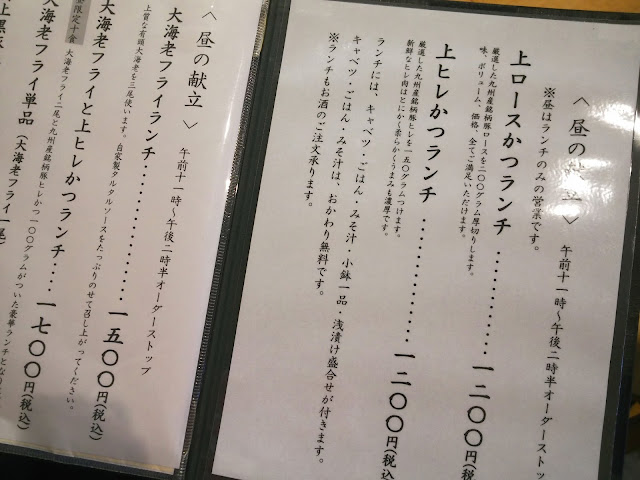 〈昼の献立〉
午前十一時〜午後二時半オーダーストッ
※昼はランチのみの営業です。
上ロースかつランチ・・・・・・・・・・・一二〇〇円(税込
厳選した九州産銘柄豚ロースを二〇〇グラム厚切りします。
味、ボリューム、価格、全てご満足いただけます。
上ヒレかつランチ・・・・・・・・・・・・・一二〇〇円(税込
厳選した九州産銘柄豚ヒレを一五〇グラムつけます。
新鮮なヒレ肉はとにかく柔らかくうまみも濃厚です。
ランチには、キャベツ・ごはん・みそ汁、小鉢一品・浅漬け盛合せが付きます。
キャベツ・ごはん・みそ汁は、おかわり無料です。
※ランチもお酒のご注文承ります。
〈昼の献立〉
午前十一時〜午後二時半オーダーストップ
大海老フライランチ・・・・・・・・・・・・・一五〇〇円(税込)
上質な有頭大海老を三尾使います。自家製タルタルソースをたっぷりのせて召し上がってください。
大海老フライと上ヒレかつランチ・・・一七〇〇円(税込)
限定十食
大海老フライ二尾と九州産銘柄豚ヒレかつ一〇〇グラムがついた豪華ランチとな
大海老フライ単品(大海老フライ一尾)
上黒豚